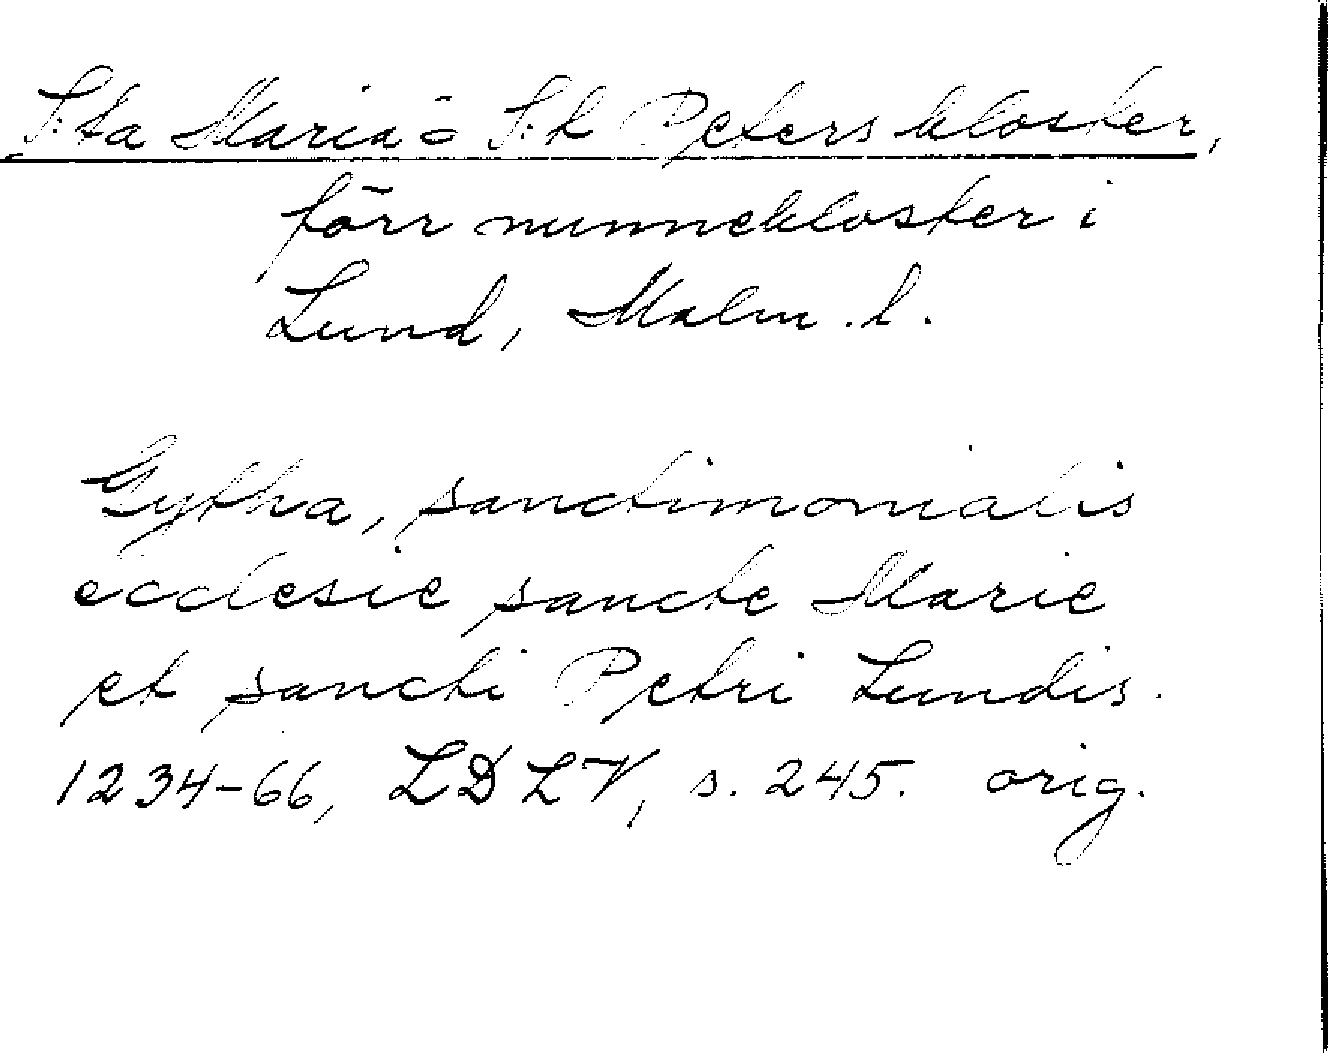 S:ta Maria o S:t Peters kloster,
förr nunnekloster i
Lund, Malm. l.
Gytha, sanctimonialis
ecclesie sancte Marie
et sancti Petri Lundis.
1234-66, LDLV, s. 245. orig.